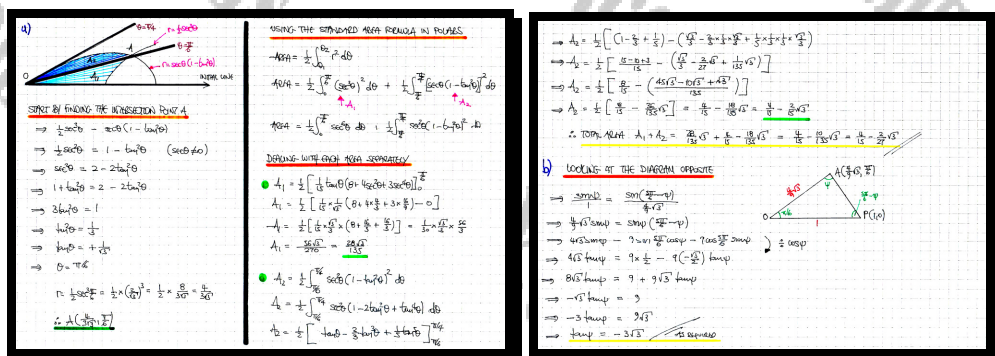 a)
θ=π/4
r=½sec³θ
A
θ=π/6
A₂
r=secθ(1-tan²θ)
A₁
O
INITIAL LINE
START BY FINDING THE INTERSECTION POINT A
⇒ ½sec³θ = secθ(1-tan²θ)
⇒ ½sec²θ = 1 - tan²θ (secθ≠0)
⇒ sec²θ = 2 - 2tan²θ
⇒ 1+tan²θ = 2 - 2tan²θ
⇒ 3tan²θ = 1
⇒ tan²θ = 1/3
⇒ tanθ = + 1/√3
⇒ θ = π/6
r = ½sec³π/6 = ½ × (2/√3)³ = ½ × 8/(3√3) = 4/(3√3)
∴ A(4/(3√3), π/6)
USING THE STANDARD AREA FORMULA IN POLARS
AREA = ½∫ r² dθ
AREA = ½∫ (sec³θ)² dθ + ½∫ [secθ(1-tan²θ)]² dθ
A₁
A₂
AREA = ½∫ sec⁶θ dθ + ½∫ sec²θ(1-tan²θ)² dθ
DEALING WITH EACH AREA SEPARATELY
A₁ = ½[1/15 tanθ(8+4sec²θ+3sec⁴θ)]
A₁ = ½[1/15 × 1/√3 (8+4×4/3+3×16/9) - 0]
A₁ = ½[1/15 × √3/3 × (8+16/3+16/3)] = 1/30 × √3/3 × 56/3
A₁ = 56√3/270 = 28√3/135
A₂ = ½∫ sec²θ(1-tan²θ)² dθ
A₂ = ½∫ sec²θ(1-2tan²θ+tan⁴θ) dθ
A₂ = ½[tanθ - ⅔tan³θ + 1/5 tan⁵θ]
⇒ A₂ = ½[(1-2/3+1/5) - (√3/3 - 2/3×1/3×√3/3 + 1/5×1/3×1/3×√3/3)]
⇒ A₂ = ½[(15-10+3)/15 - (√3/3 - 2/27√3 + 1/135√3)]
⇒ A₂ = ½[8/15 - (45√3-10√3+√3)/135]
⇒ A₂ = ½[8/15 - 36/135√3] = 4/15 - 18/135√3 = 4/15 - 2/15√3
∴ TOTAL AREA A₁+A₂ = 28/135√3 + 4/15 - 18/135√3 = 4/15 + 10/135√3 = 4/15 + 2/27√3
b) LOOKING AT THE DIAGRAM OPPOSITE
A(4/9√3, π/6)
4/9√3
ψ
5π/6-ψ
O
π/6
1
P(1,0)
⇒ sinψ/1 = sin(5π/6-ψ)/(4/9√3)
⇒ 4/9√3 sinψ = sin(5π/6-ψ)
⇒ 4√3sinψ = 9sin5π/6cosψ - 9cos5π/6sinψ
÷ cosψ
⇒ 4√3tanψ = 9×½ - 9(-√3/2)tanψ
⇒ 8√3tanψ = 9 + 9√3tanψ
⇒ -√3tanψ = 9
⇒ -3tanψ = 9√3
⇒ tanψ = -3√3
AS REQUIRED